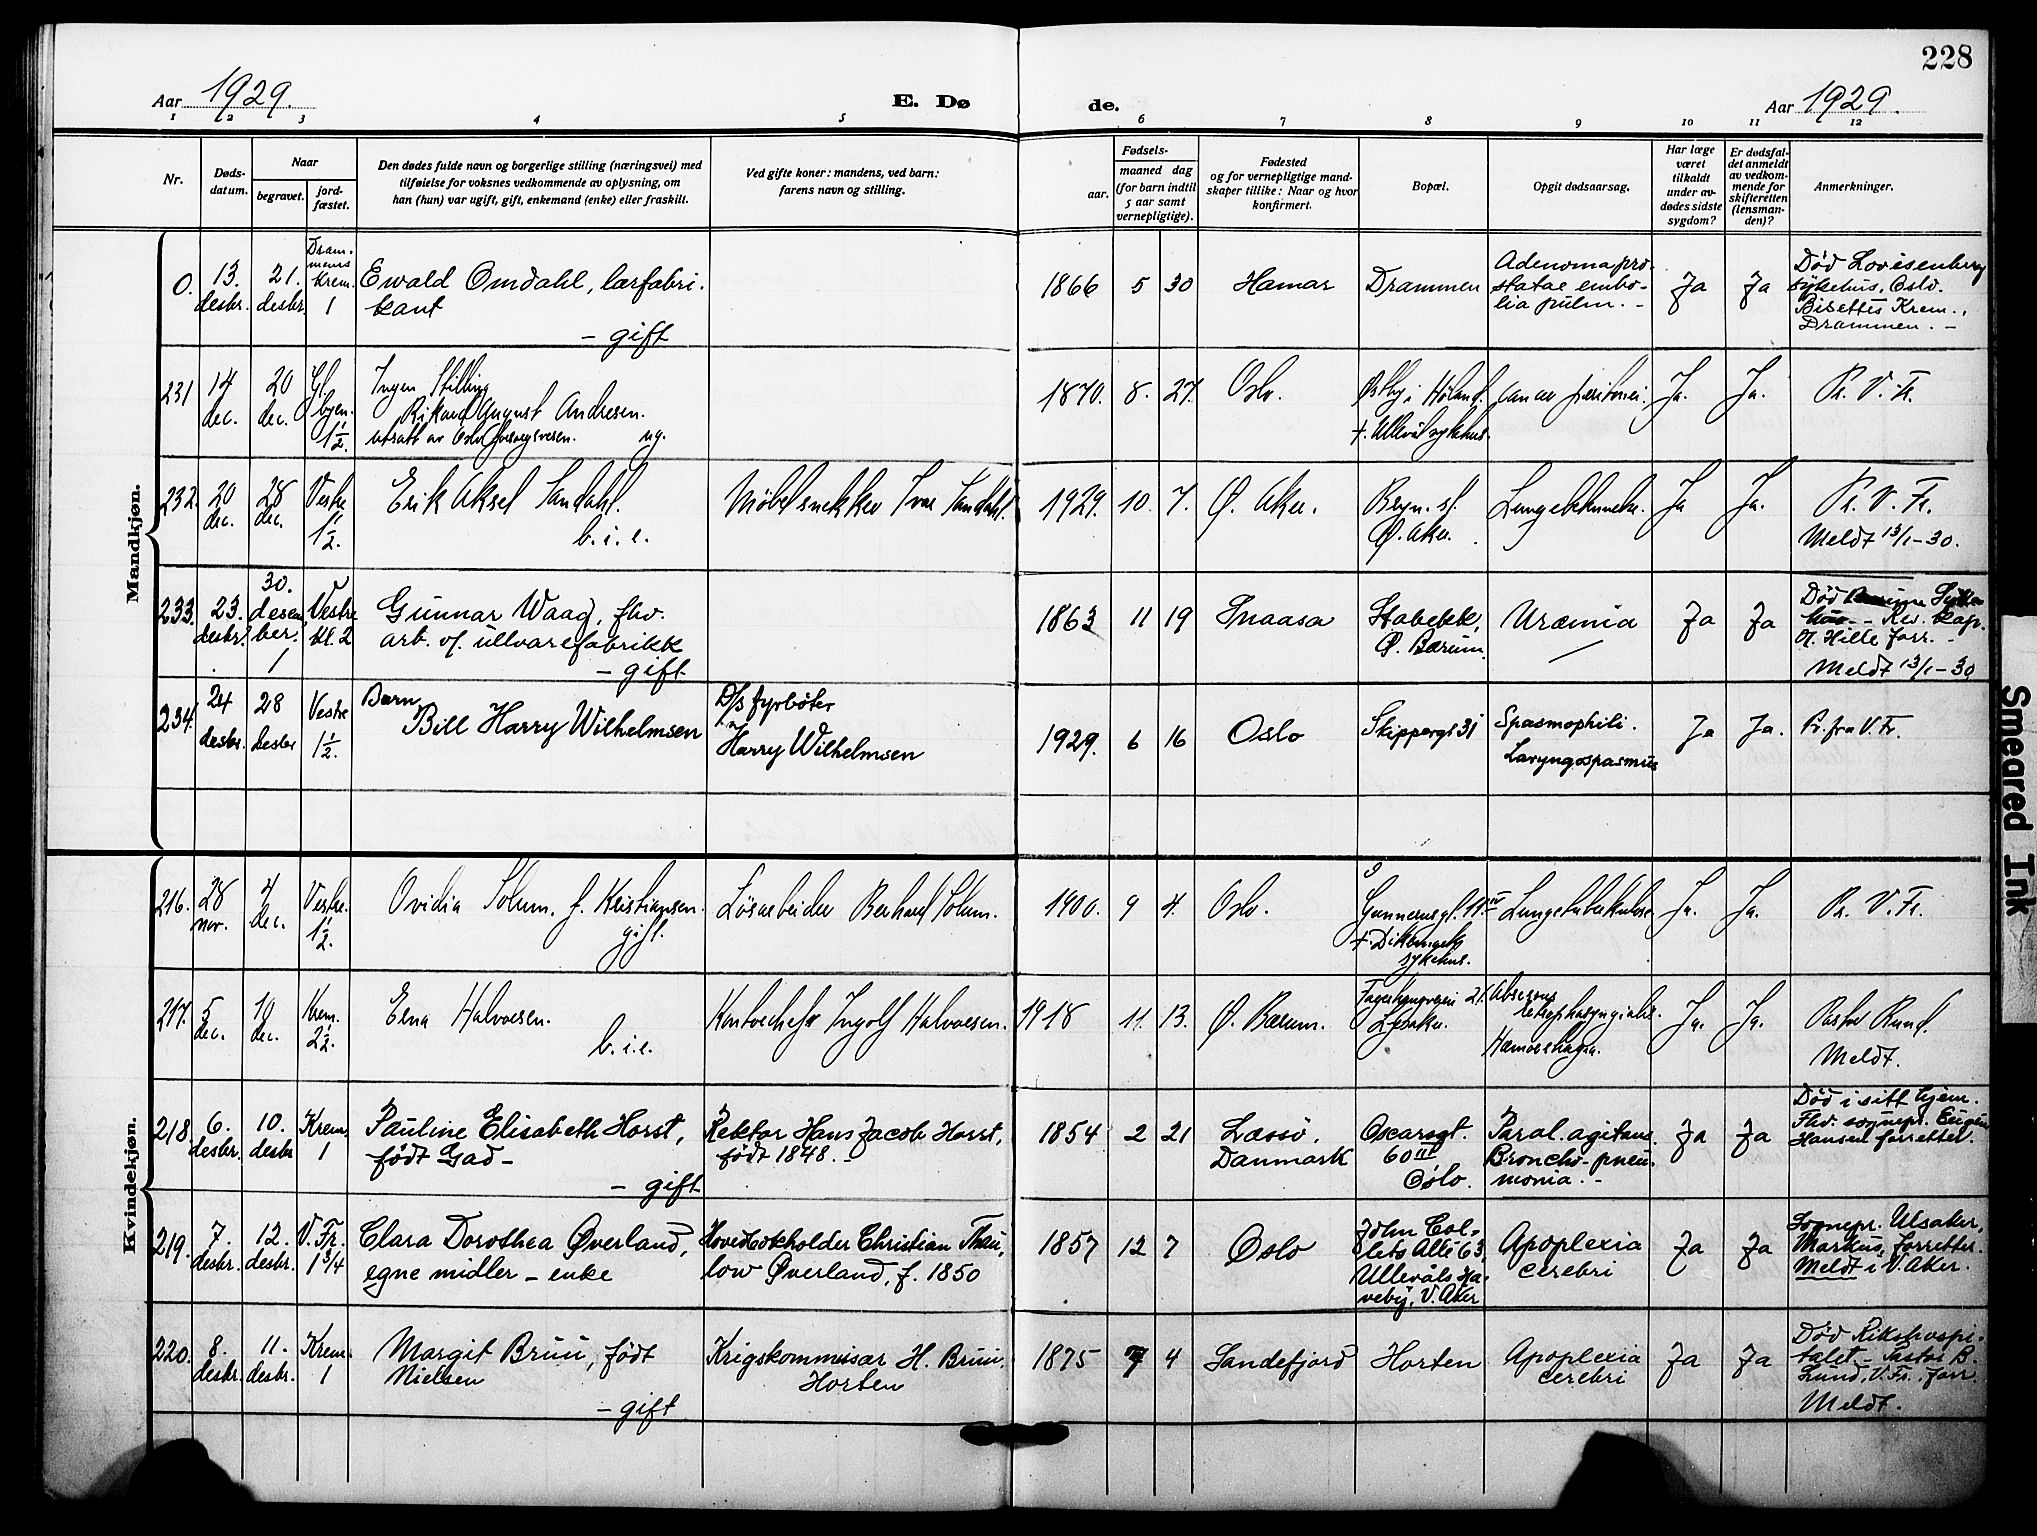 228
Aar 1929.
E. Dø
de.
Aar 1929.
1 2 3 4 5 6 7 8 9 10 11 12
Nr.
Døds-
datum.
Naar
begravet.
jord-
fæstet.
Den dødes fulde navn og borgerlige stilling (næringsvei) med
tilføielse for voksnes vedkommende av oplysning, om
han (hun) var ugift, gift, enkemand (enke) eller fraskilt.
Ved gifte koner: mandens, ved barn:
farens navn og stilling.
Fødsels-
aar.
maaned dag
(for barn indtil
5 aar samt
vernepligtige).
Fødested
og for vernepligtige mand-
skaper tillike: Naar og hvor
konfirmert.
Bopæl.
Opgit dødsaarsag.
Har læge
været
tilkaldt
under av-
dødes sidste
sygdom?
Er dødsfal-
det anmeldt
av vedkom-
mende for
skifteretten
(lensman-
den)?
Anmerkninger.
Mandkjøn.
0.
13.
desbr.
21.
desbr.
Dram-
mens
Krem.
1
Ewald Omdahl, lærfabri-
kant
- gift
1866 5 30
Hamar
Drammen
Adenoma pro-
statae embo-
lia pulm. -
Ja
Ja
Død Lovisenberg
sykehus, Oslo.
Bisettes Krem.,
Drammen. -
231
14
dec.
20
dec.
Gl.
byen.
1 1/2.
Ingen Stilling
Rikard August Andresen.
ug.
1870. 8. 27.
Oslo.
Østby i Høland.
†. Ullevål sykehus.
Cancer peritonei.
Ja.
Ja.
Pr. V. Fr.
232.
20
dec.
28
dec.
Vestre
1 1/2.
Erik Aksel Sandahl.
b. i. e.
Møbelsnekker Ivar Sandahl.
1929. 10. 7.
Ø. Aker.
Bryn. st.
Ø. Aker.
Lungebetennelse.
Ja
Ja.
Pr. V. Fr.
Meldt 13/1-30.
233.
23.
desbr.
30.
desem
ber.
1
Vestre
kl. 2
Gunnar Waag, fhv.
arb. v/. ullvarefabrikk
- gift
1863 11 19
Snaasa
Stabekk,
Ø. Bærum.
Uræmia
Ja
Ja
Død
- Res. kap.
O. Hille forr. -
Meldt 13/1-30
234.
24
desbr.
28
desbr
Vestre
1 1/2.
Barn
Bill Harry Wilhelmsen
D/s fyrbøter
Harry Wilhelmsen
1929. 6 16
Oslo
Skippergt 31
Spasmophili.
Laryngospasmus
Ja
Ja.
Pr. fra V. Fr.
Kvindekjøn.
216.
28
nov.
4
dec.
Vestre.
1 1/2.
Ovidia Solum. f. Kristiansen.
gift.
Løsarbeider Berhard Solum.
1900. 9 4.
Oslo.
Gunnerusgt. 11 IV
†. Dikemark
sykehus.
Lungetuberkulose.
Ja.
Ja.
Pr. V. Fr.
217.
5
dec.
10
dec.
Krem.
2 1/2.
Erna Halvorsen.
b. i. e.
Kontorchef Ingolf Halvorsen.
1918 11. 13.
Ø. Bærum.
21.
Lysaker.
Absessus
retropharyngialis.
Hæmorrhagia.
Ja.
Ja.
Pastor Rund.
Meldt.
218.
6.
desbr.
10.
desbr
Krem,
1
Pauline Elisabeth Horst,
født Gad -
- gift
Rektor Hans Jacob Horst,
født 1848. -
1854 2 21
Læssø,
Danmark
Oscarsgt.
60 III
Oslo.
Paral. agitans.
Broncho-pneu-
monia. -
Ja
Ja
Død i sitt hjem.
Fhv. sognepr. Eugen
Hansen forretter.
219.
7.
desbr.
12.
desbr.
V. Fr.
1 3/4
Clara Dorothea Øverland,
egne midler - enke
Hovedbokholder Christian Thau-
low Øverland, f. 1850
1857 12 7
Oslo
John Col-
lets Allé 63,
Ullevåls Ha-
veby, V. Aker
Apoplexia
cerebri
Ja
Ja
Sognepr. Ulsaker,
Markus, forretter.
Meldt i V. Aker.
220.
8.
desbr.
11.
desbr.
Krem.
1
Margit Bruu, født
Nielsen
- gift
Krigskommisær H. Bruu,
Horten
1875 7 4
Sandefjord
Horten
Apoplexia
cerebri
Ja
Ja
Død Rikshospi-
talet - Pastor B.
Lund, V. Fr., forr.
Meldt.
Smeared Ink